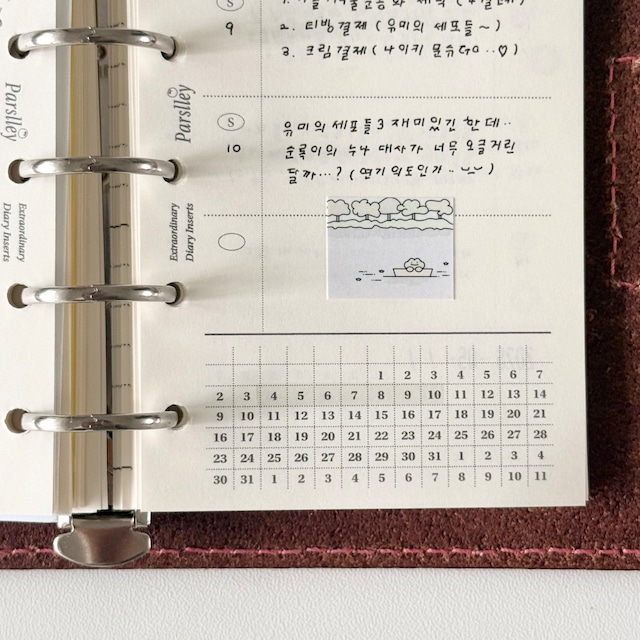 S
9
2. 티빙결제 (유미의 세포들~)
3. 크림결제 (나이키
S
10
유미의 세포들3 재미있긴 한데..
순록이의 누나 대사가 너무 오글거린
달까...? (연기 의도인가..
Parslley
Extraordinary
Diary Inserts
Parslley
Extraordinary
Diary Inserts
1 2 3 4 5 6 7
2 3 4 5 6 7 8 9 10 11 12 13 14
9 10 11 12 13 14 15 16 17 18 19 20 21
16 17 18 19 20 21 22 23 24 25 26 27 28
23 24 25 26 27 28 29 30 31 1 2 3 4
30 31 1 2 3 4 5 6 7 8 9 10 11